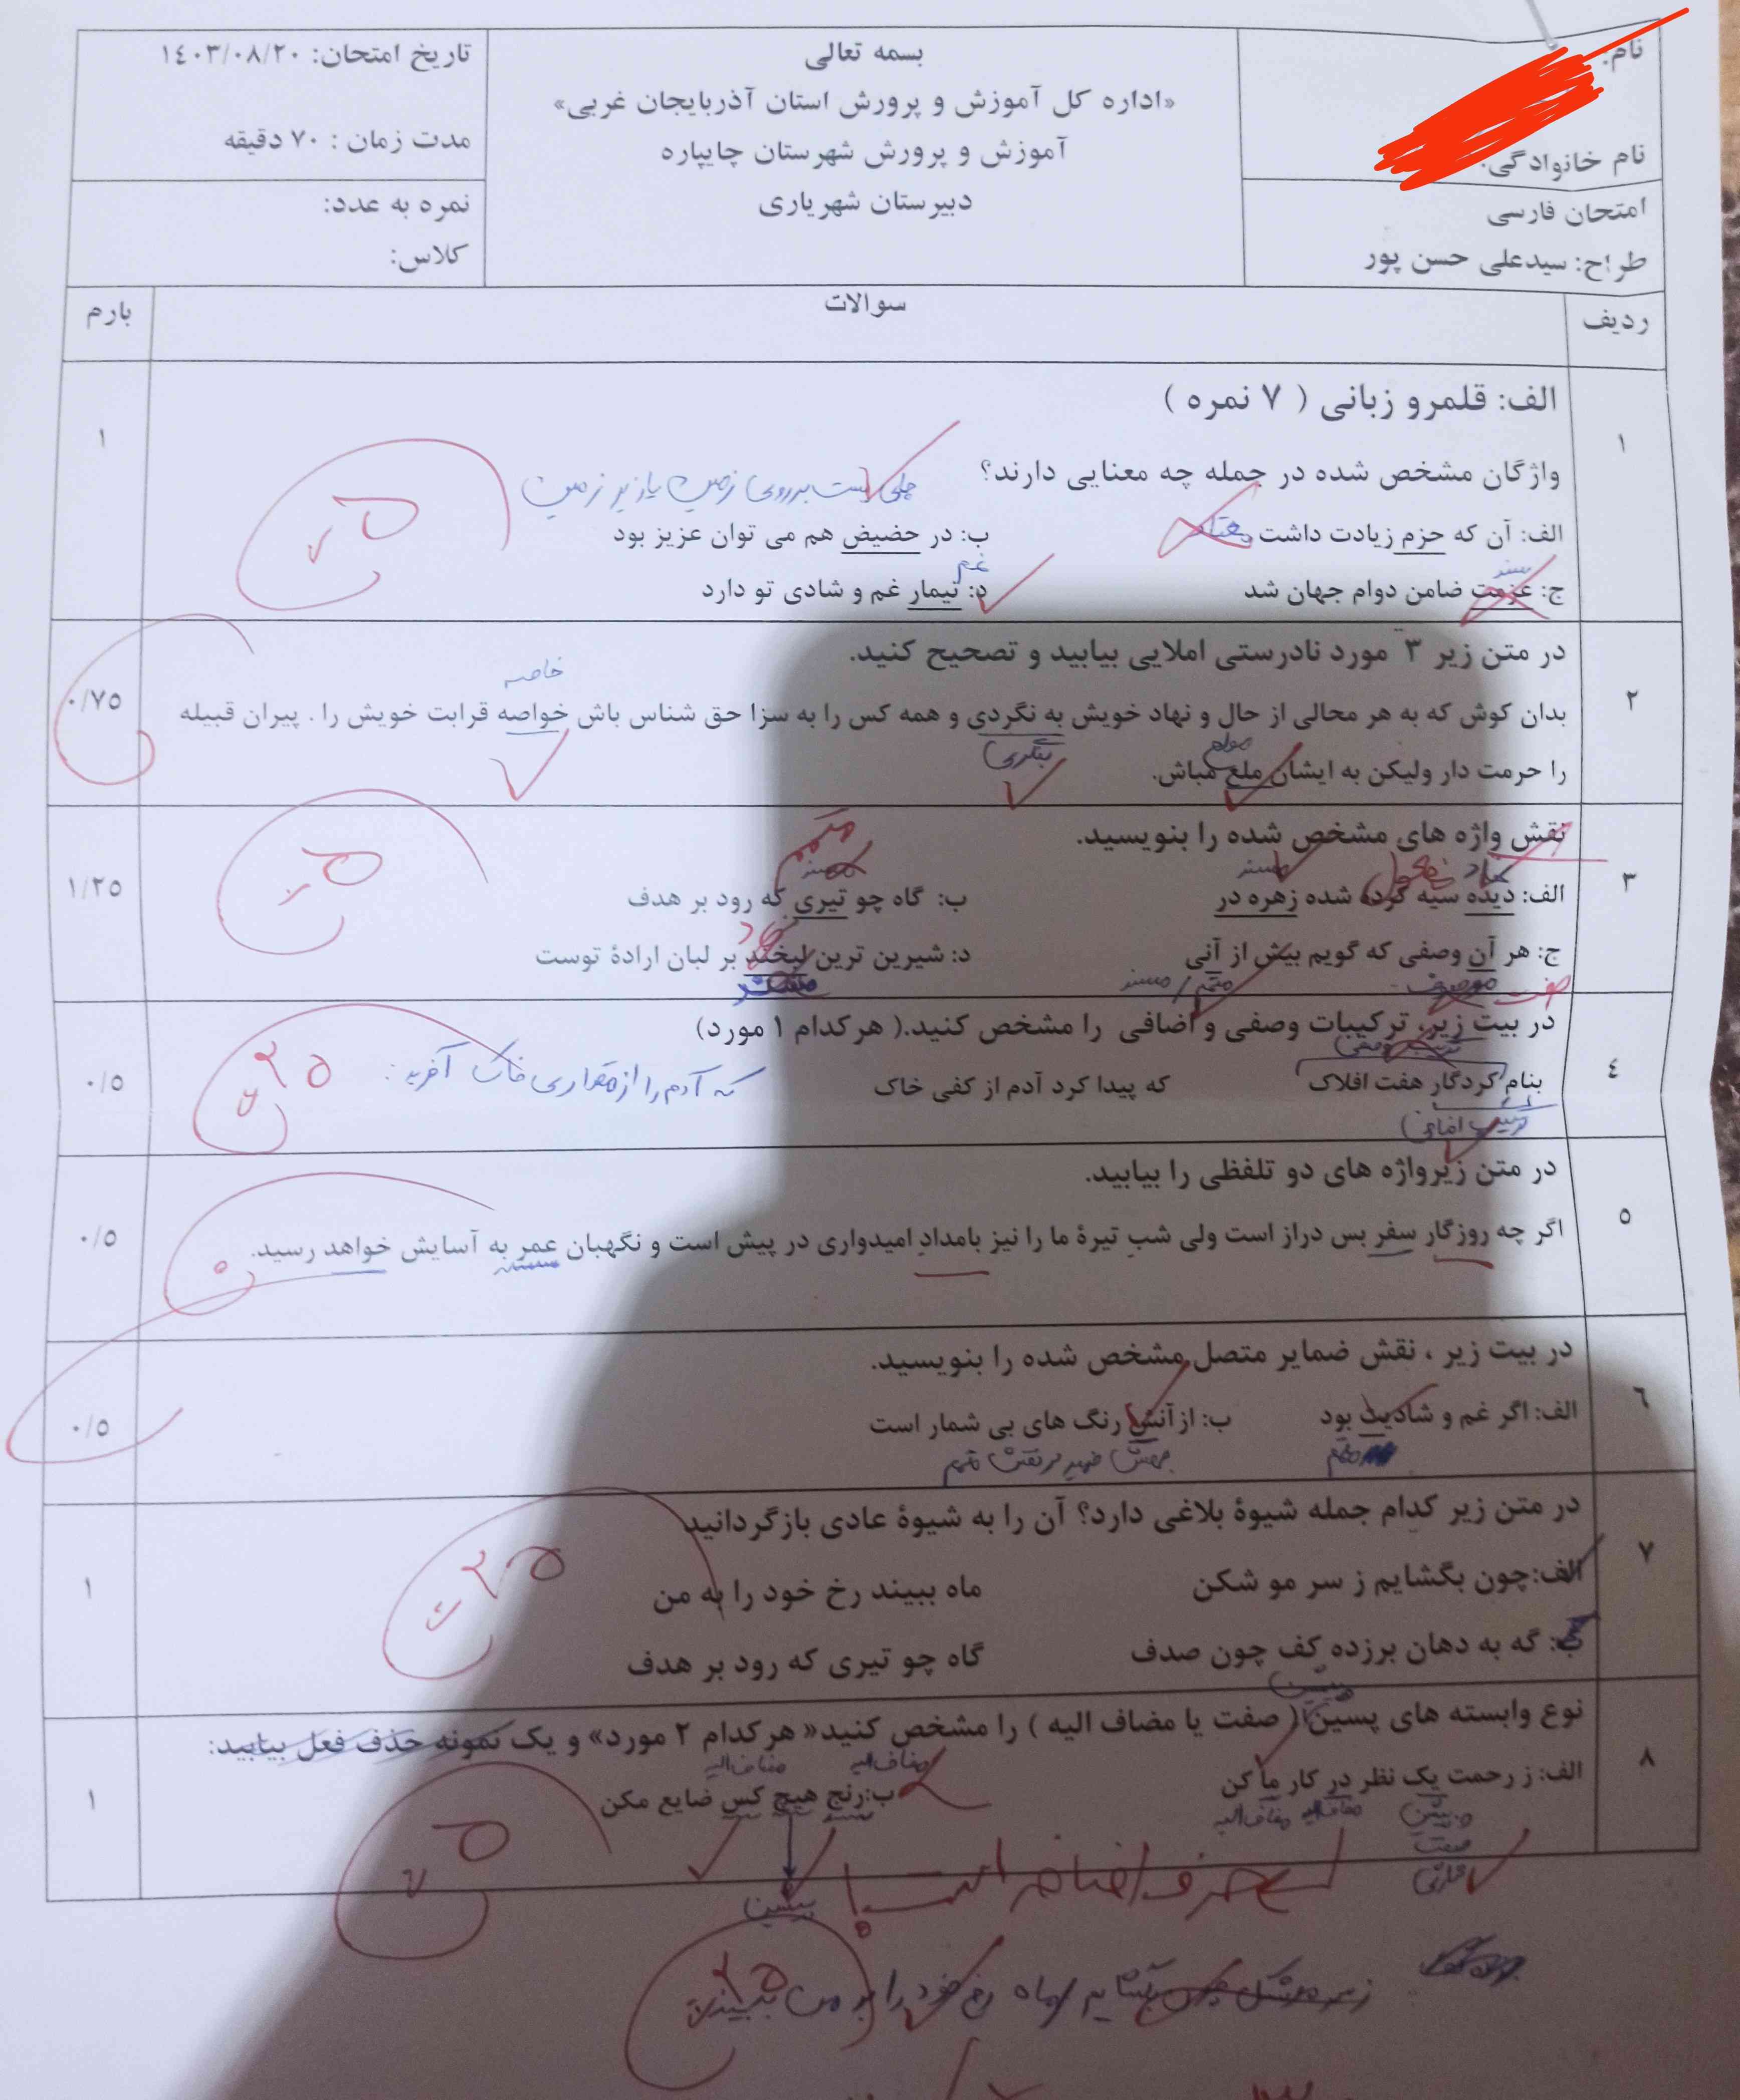 نام:
نام خانوادگی:
امتحان فارسی
طراح: سیدعلی حسن پور
بسمه تعالی
«اداره کل آموزش و پرورش استان آذربایجان غربی»
آموزش و پرورش شهرستان چایپاره
دبیرستان شهریاری
تاریخ امتحان: ۱۴۰۳/۰۸/۲۰
مدت زمان : ۷۰ دقیقه
نمره به عدد:
کلاس:
ردیف سوالات بارم
الف: قلمرو زبانی ( ۷ نمره )
۱ واژگان مشخص شده در جمله چه معنایی دارند؟ ۱
پست بر روی زمین یا زیر زمین
الف: آن که حزم زیادت داشت ب: در حضیض هم می توان عزیز بود
غم
ج: عزمت ضامن دوام جهان شد د: تیمار غم و شادی تو دارد
۲ در متن زیر ۳ مورد نادرستی املایی بیابید و تصحیح کنید. ۰/۷۵
خاصه
بدان کوش که به هر محالی از حال و نهاد خویش به نگردی و همه کس را به سزا حق شناس باش خواصه قرابت خویش را . پیران قبیله
مولع بنگری
را حرمت دار ولیکن به ایشان ملع مباش.
۳ نقش واژه های مشخص شده را بنویسید. ۱/۲۵
نهاد مفعول مسند
الف: دیده سیه کرده شده زهره در ب: گاه چو تیری که رود بر هدف
ج: هر آن وصفی که گویم بیش از آنی د: شیرین ترین لبخند بر لبان ارادهٔ توست
صفت موصوف متمم / مسند
۴ در بیت زیر، ترکیبات وصفی و اضافی را مشخص کنید.( هرکدام ۱ مورد) ۰/۵
ترکیب وصفی
بنام کردگار هفت افلاک که پیدا کرد آدم از کفی خاک که آدم را از مقداری خاک آفرید:
ترکیب اضافی
۲۵
۵ در متن زیرواژه های دو تلفظی را بیابید. ۰/۵
اگر چه روزگار سفر بس دراز است ولی شب تیرهٔ ما را نیز بامداد امیدواری در پیش است و نگهبان عمر به آسایش خواهد رسید.
۶ در بیت زیر ، نقش ضمایر متصل مشخص شده را بنویسید. ۰/۵
الف: اگر غم و شادیت بود ب: ازآنش رنگ های بی شمار است
متمم
۷ در متن زیر کدام جمله شیوهٔ بلاغی دارد؟ آن را به شیوهٔ عادی بازگردانید ۱
الف:چون بگشایم ز سر مو شکن ماه ببیند رخ خود را به من
ب: گه به دهان برزده کف چون صدف گاه چو تیری که رود بر هدف
۲۵
پیشین
۸ نوع وابسته های پسین( صفت یا مضاف الیه ) را مشخص کنید« هرکدام ۲ مورد» و یک نمونه حذف فعل بیابید: ۱
مضاف الیه مضاف الیه
الف: ز رحمت یک نظر در کار ما کن ب:رنج هیچ کس ضایع مکن
پیشین مضاف الیه مضاف الیه
صفت
پیشین
حرف اضافه است!
رخ خود را به من ببیند
۲۵